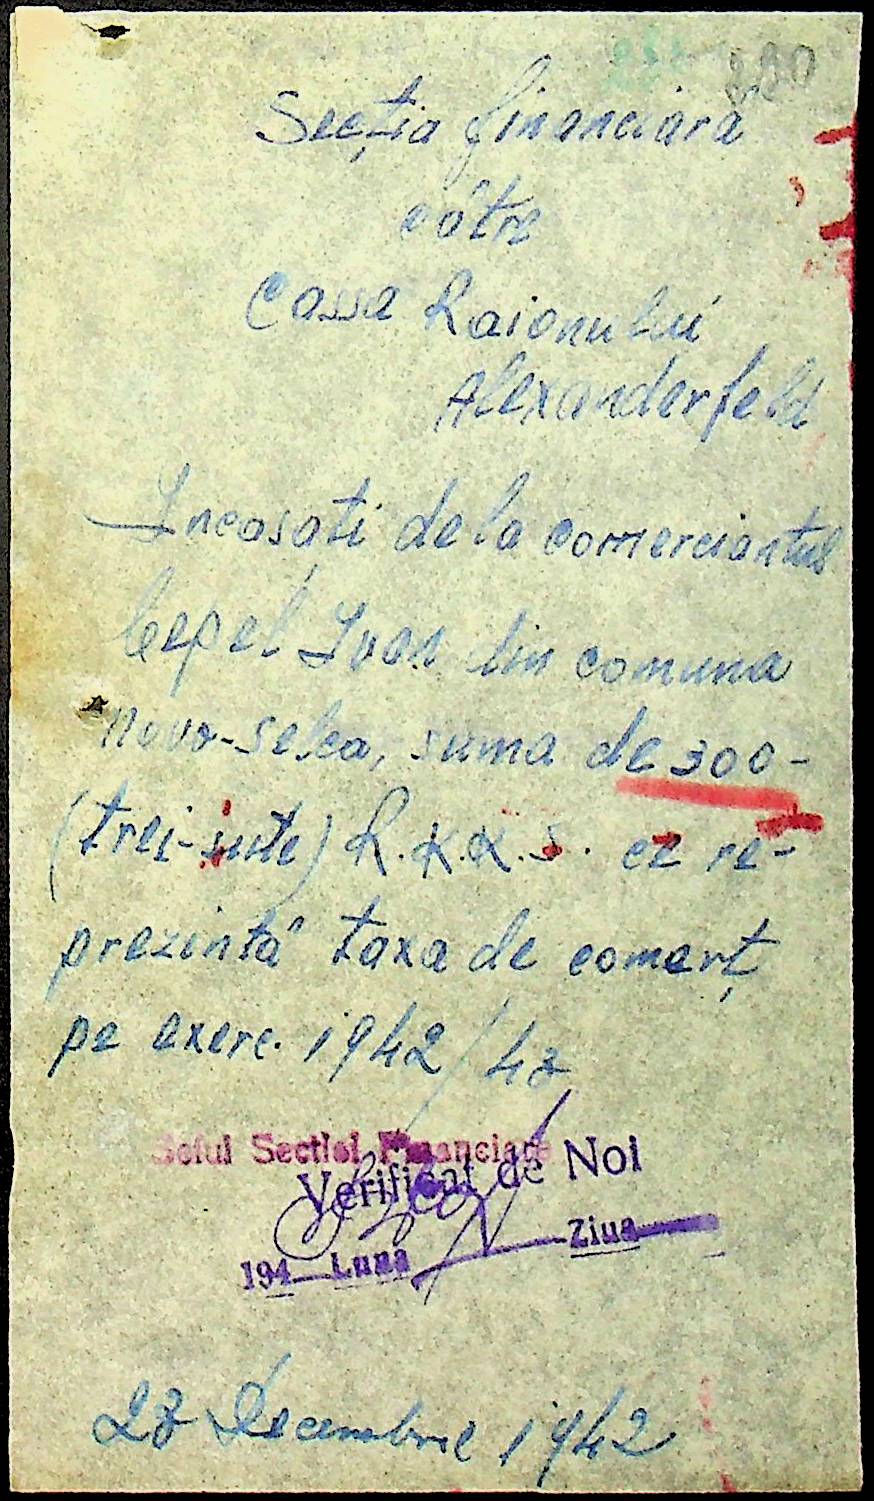 290
Secția financiară
către
Cassa Raionului
Alexanderfeld
Incasați dela comerciantul
Cepel Ivan din comuna
Novo-Selca, suma de 300-
(trei-sute) R.K.K.S. ce re-
prezintă taxa de comerț
pe exerc. 1942/43
Seful Sectiei Financiare
Verificat de Noi
194 Luna Ziua
23 Decembrie 1942